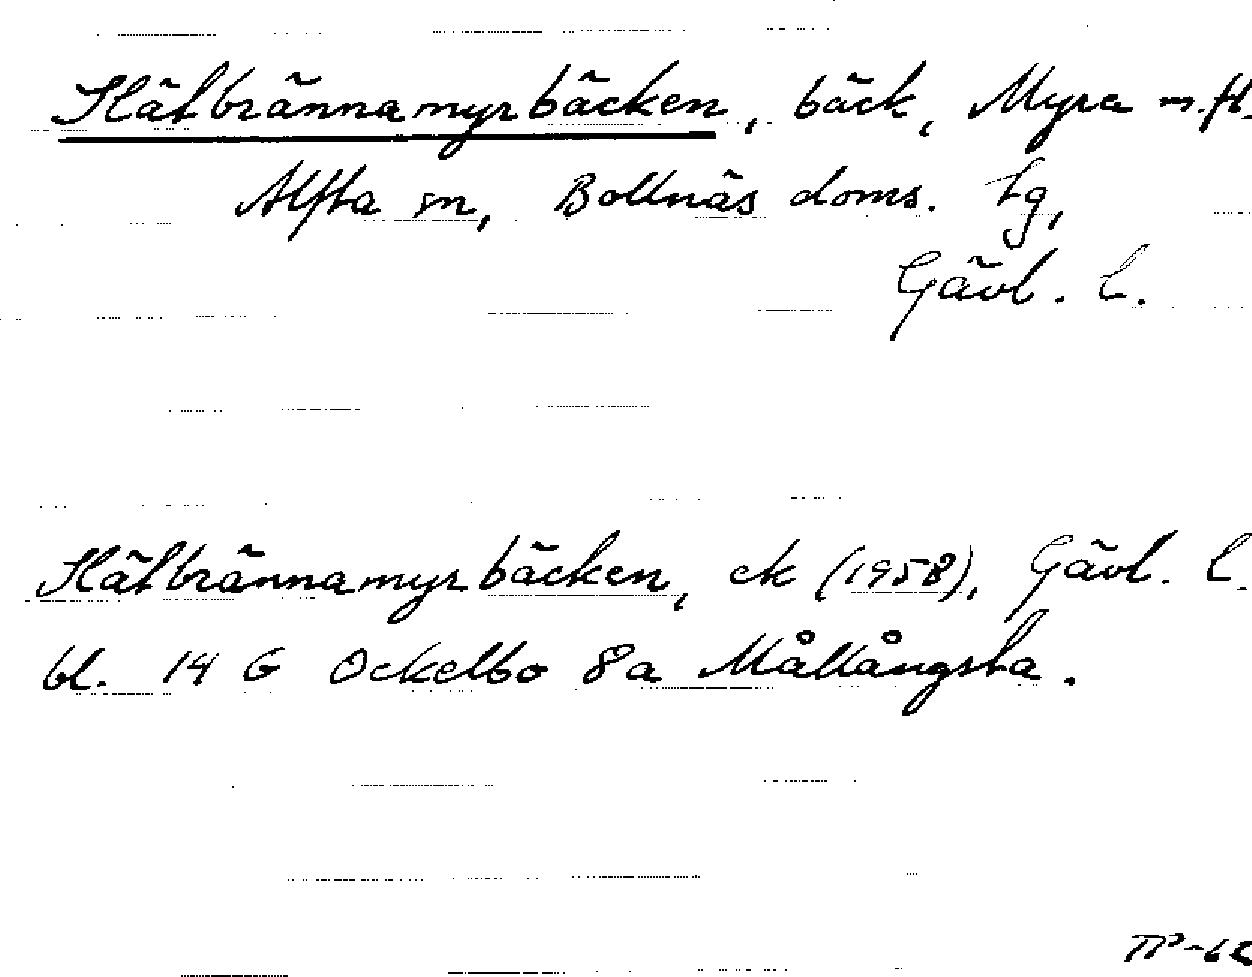 Slätbrännamyrbäcken, bäck, Myra m.fl.
Alfta sn, Bollnäs doms. tg,
Gävl. l.
Slätbrännamyrbäcken, ek (1958), Gävl. l.
bl. 14 G Ockelbo 8a Mållångsta.